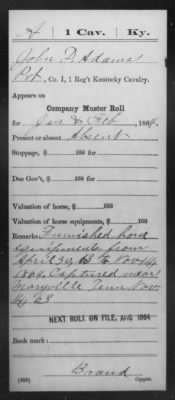 A | 1 Cav. | Ky.
John D. Adams
Pvt., Co. I, 1 Reg't Kentucky Cavalry.
Appears on
Company Muster Roll
for Jan & Feb, 1864.
Present or absent Absent
Stoppage, $ 100 for
Due Gov't, $ 100 for
Valuation of horse, $ 100
Valuation of horse equipments, $ 100
Remarks: Furnished horse
equipments from
April 30, 63 to Nov 14
1863, Captured near
Maryville Tenn Nov
14/63
NEXT ROLL ON FILE, AUG. 1864
Book mark:
Brand
(358) Copyist.